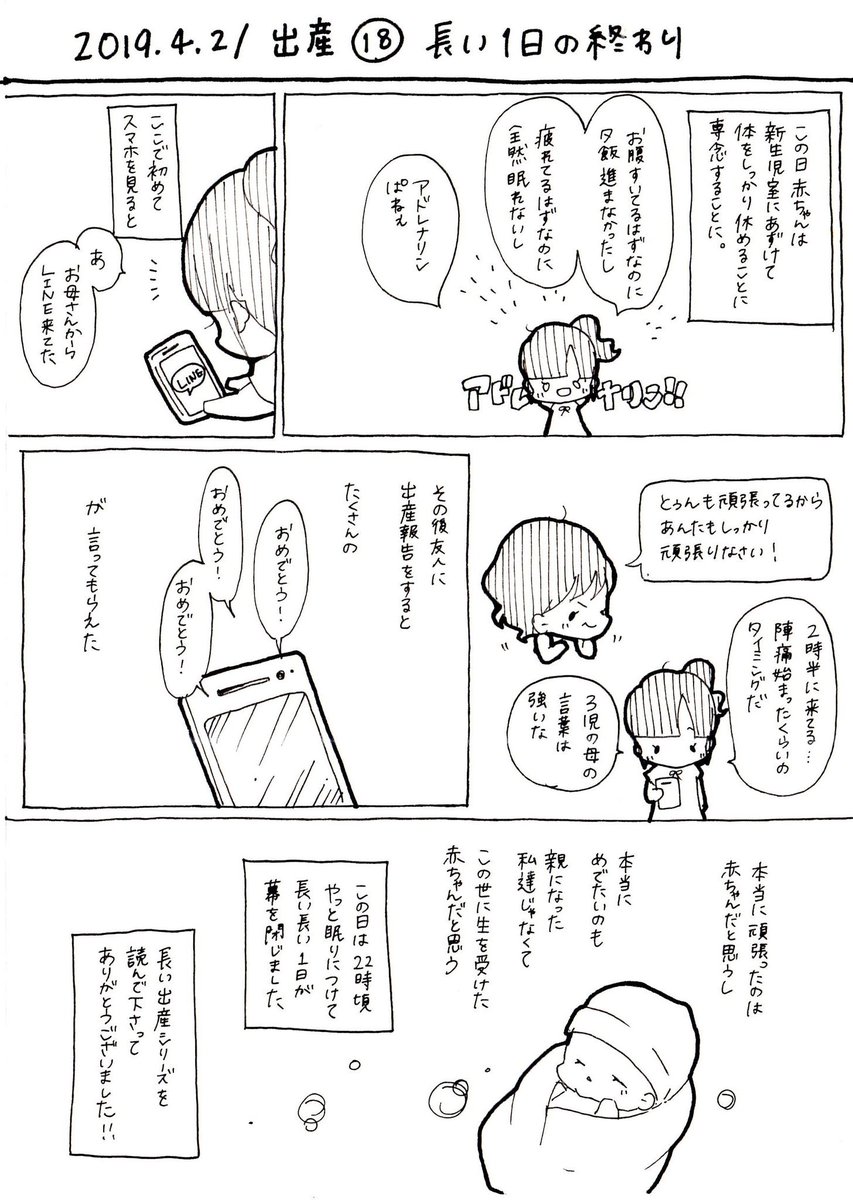 2019.4.21 出産 ⑱ 長い1日の終わり
この日赤ちゃんは
新生児室にあずけて
体をしっかり休めることに
専念することに。
お腹すいてるはずなのに
夕飯進まなかったし
疲れてるはずなのに
全然眠れないし
アドレナリン
ぱねぇ
ここで初めて
スマホを見ると
あ
お母さんから
LINE来てた
LINE
とぅんも頑張ってるから
あんたもしっかり
頑張りなさい!
2時半に来てる…
陣痛始まったくらいの
タイミングだ
3児の母の
言葉は
強いな
その後友人に
出産報告をすると
たくさんの
おめでとう!
おめでとう!
おめでとう!
が 言ってもらえた
本当に頑張ったのは
赤ちゃんだと思うし
本当に
めでたいのも
親になった
私達じゃなくて
この世に生を受けた
赤ちゃんだと思う
この日は22時頃
やっと眠りにつけて
長い長い1日が
幕を閉じました
長い出産シリーズを
読んで下さって
ありがとうございました!!